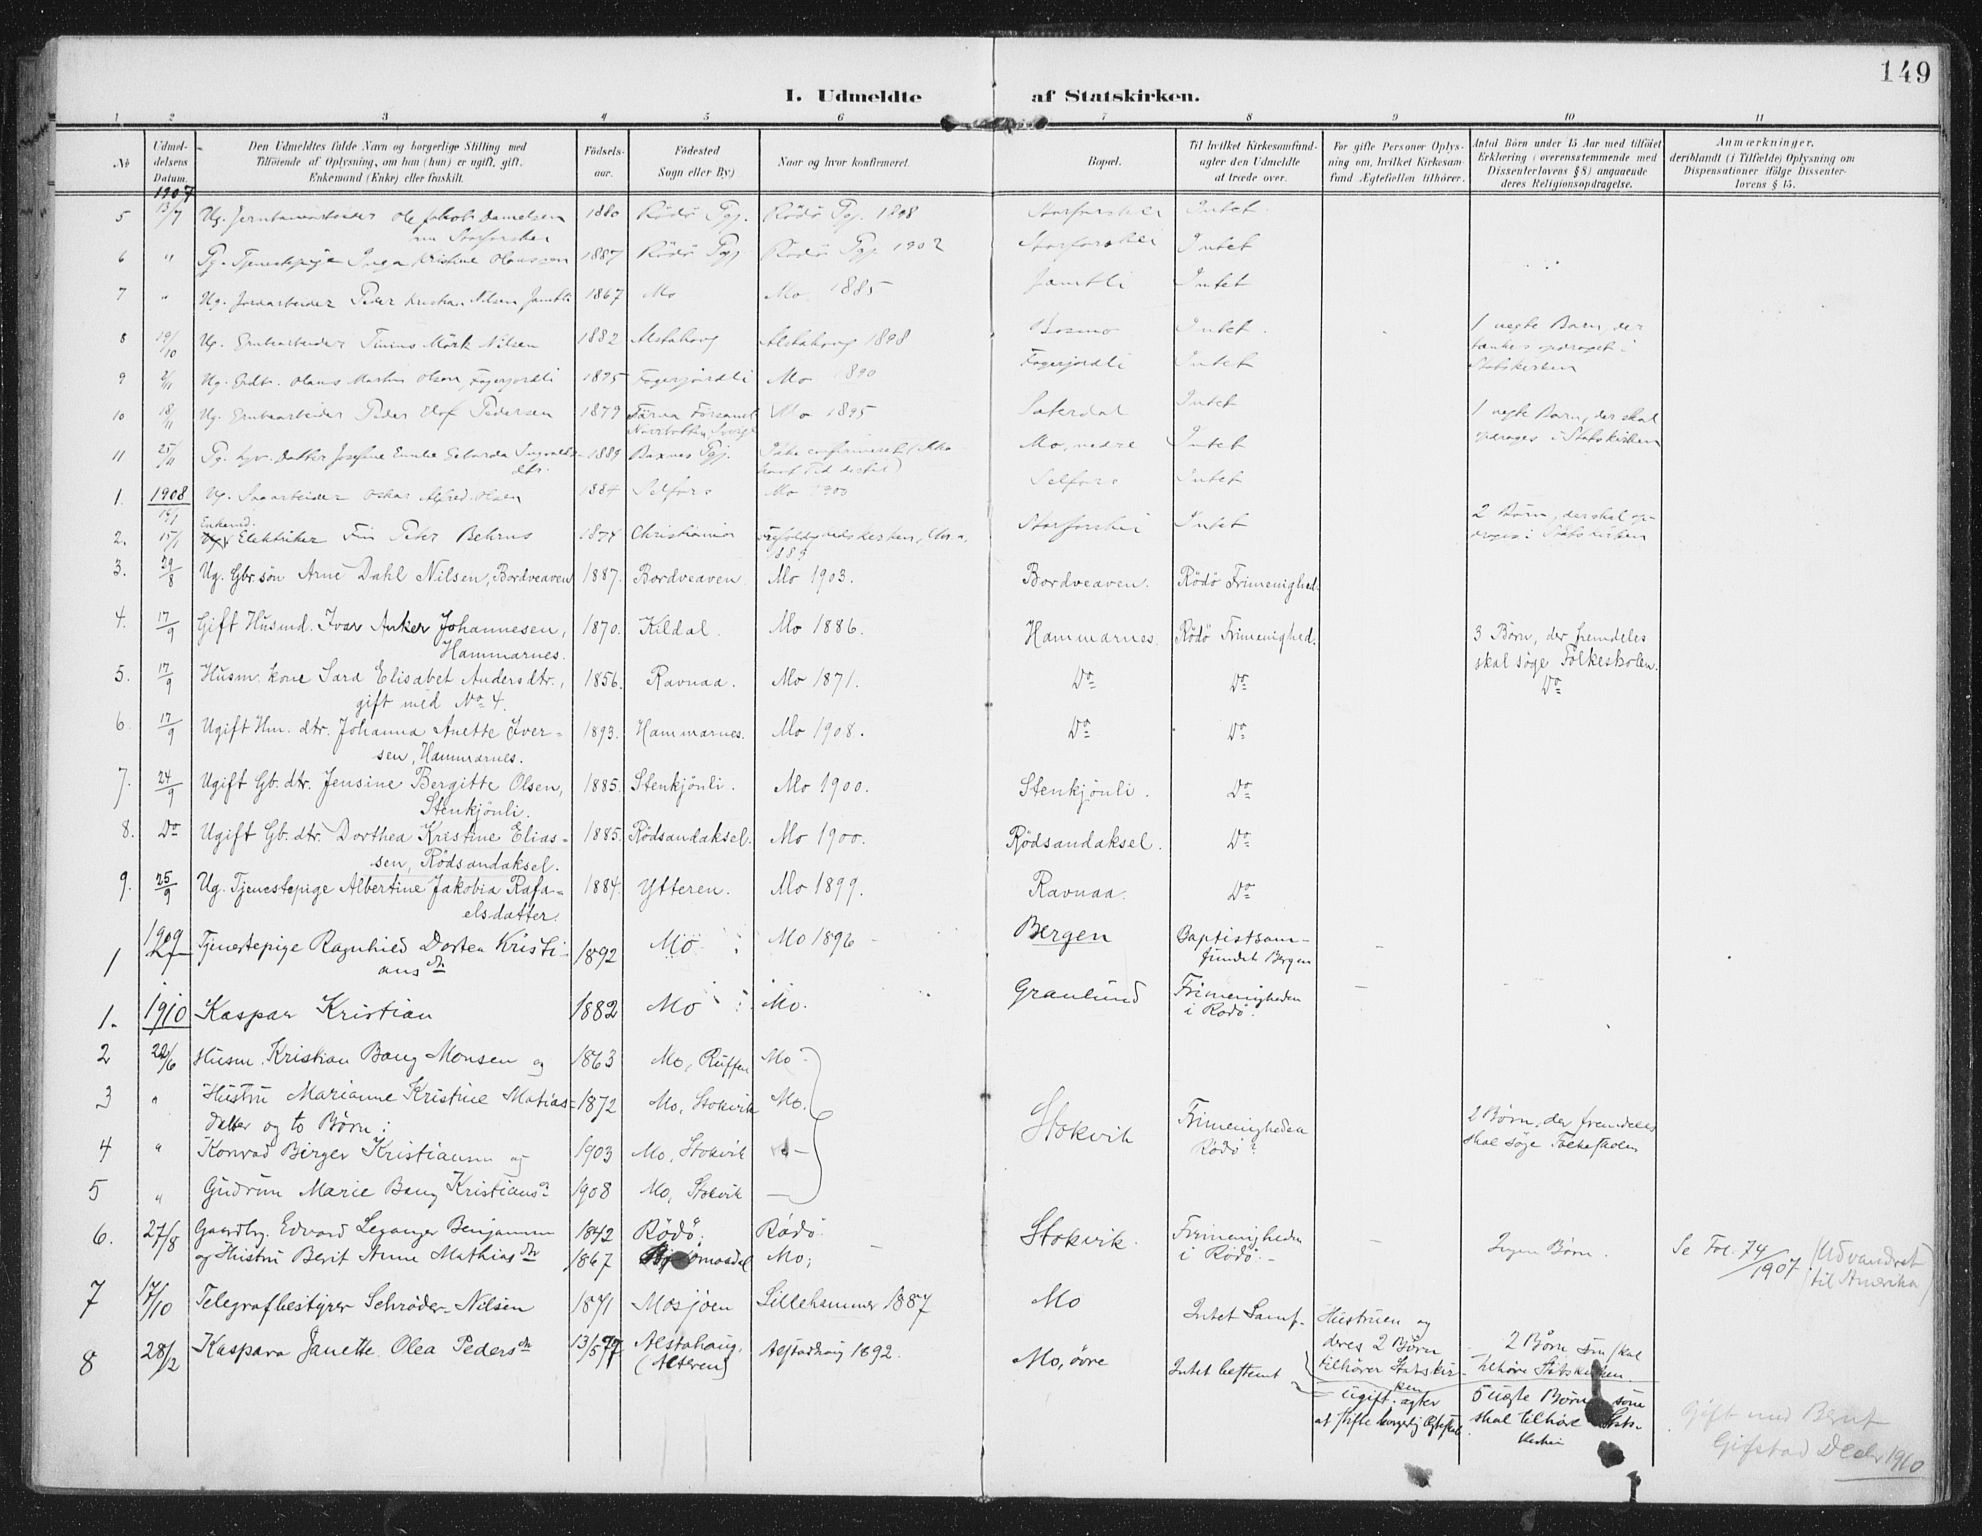 149
I. Udmeldte af Statskirken.
1 2 3 4 5 6 7 8 9 10 11
No
Udmel-
delsens
Datum.
Den Udmeldtes fulde Navn og borgerlige Stilling med
Tilföiende af Oplysning, om han (hun) er ugift, gift,
Enkemand (Enke) eller fraskilt.
Födsels-
aar.
Födested
Sogn eller By)
Naar og hvor konfirmeret.
Bopæl.
Til hvilket Kirkesamfund
agter den Udmeldte
at træde over.
For gifte Personer Oplys-
ning om, hvilket Kirkesam-
fund Ægtefællen tilhörer.
Antal Börn under 15 Aar med tilföiet
Erklæring (overensstemmende med
Dissenterlovens § 8) angaaende
deres Religionsopdragelse.
Anmærkninger,
deriblandt (i Tilfælde) Oplysning om
Dispensationer ifölge Dissenter-
lovens § 15.
1907
5 13/7 Ug. Jernbanearbeider Ole Jakob Danielsen 1880 Rödö Pgj. Rödö Pgj. 1898 Storforshei Intet.
Storforshei
6 " Pg. Tjenestepige Inga Kristine Olaussen 1887 Rödö Pgj. Rödö Pgj. 1902 Storforshei Intet
7 " Ug. Jordarbeider Peder Kristian Nilsen Jamtli 1867 Mo Mo 1885 Jamtli Intet
8 19/10 Ug. Grubearbeider Tinius Mörk Nilsen 1882 Alstahoug Alstahoug 1898 Bosmo Intet. 1 uegte Barn, der
tænkes opdraget i
Statskirken
9 2/11 Ug. Gdbr. Olaus Martin Olsen, Fagerjordli 1875 Fagerjordli Mo 1890 Fagerjordli Intet
10 18/11 Ug. Grubearbeider Peder Olof Pedersen 1879 Tärna Församl. Mo 1895 Saterdal Intet 1 uegte Barn, der skal
Norrbotten, Sverige opdrages i Statskirken
11 25/11 Pg. Josefine Emilie Gebarda Ingvalds- 1889 Buxnes Pgj. Ikke confirmeret Mo, nedre Intet
dtr.
1. 1908 Ug. Sagarbeider Oskar Alfred Olsen 1884 Selfors Mo 1900 Selfors Intet
Enkemd.
2. 15/1 Elektriker Peder Behrns 1874 Christiania Storforshei Intet 2 Börn, der skal op-
drages i Statskirken
3. 29/8 Ug. Gbr. sön Arne Dahl Nilsen, Bordveaven 1887. Bordveaven. Mo 1903. Bordveaven. Rödö Frimenighed.
4. 17/9 Gift Husmd. Ivar Anker Johannesen, 1870. Kildal. Mo 1886. Hammarnes. Rödö Frimenighed. 3 Börn, der fremdeles
Hammarnes. skal söge Folkeskolen.
5. 17/9 Husm. kone Sara Elisabet Andersdtr., 1856. Ravnaa. Mo 1871. Do Do Do
gift med No 4.
6. 17/9 Ugift Hm. dtr. Johanna Anette Iver- 1893. Hammarnes. Mo 1908. Do Do
sen, Hammarnes.
7. 24/9 Ugift Gb. dtr. Jensine Bergitte Olsen, 1885. Stenkjönli. Mo 1900. Stenkjönli. Do
Stenkjönli.
8. Do Ugift Gb. dtr. Dorthea Kristine Elias- 1885. Rödsandaksel. Mo 1900. Rödsandaksel. Do
sen, Rödsandaksel.
9. 25/9 Ug. Tjenestepige Albertine Jakobia Rafa- 1884. Ytteren. Mo 1899. Ravnaa. Do
elsdatter.
1909
1 Tjenestepige Ragnhild Dortea Kristi- 1892 Mo Mo 1896 Bergen Baptistsam-
ansdtr fundet Bergen
1. 1910 Kaspar Kristian 1882 Mo Mo. Granlund Frimenigheden
i Rödö.
2 22/6 Husm. Kristian Bang Monsen og 1863 Mo, Ruffen Mo
3 " Hustru Marianne Kristine Matias- 1872 Mo, Stokvik Mo. Stokvik Frimenigheden 2 Børn, der fremdeles
datter og to Børn: Rödö skal søge Folkeskolen
4 " Konrad Birger Kristiansen og 1903 Mo, Stokvik
5 " Gudrun Marie Bang Kristiansd 1908 Mo, Stokvik —
6. 27/8 Gaardbr. Edvard Leganger Benjaminsen 1842 Rödö. Rödö. Stokvik. Frimenigheden — Ingen Børn. Se Fol. 74/1907. (Udvandret
og Hustru Berit Anne Mathiasdtr 1867 Mo; i Rödö. — til Amerika)
7 17/10 Telegrafbestyrer Schröder-Nilsen 1871 Mosjøen Lillehammer 1887 Mo Intet Samf. Hustruen og
deres 2 Børn 2 Børn som skal
tilhører Statskir- tilhøre Statskirken.
ken
8 28/2 Kaspara Janette Olea Pedersdtr 13/5 77 Alstahaug. Alstadhaug 1892. Mo, øvre Intet bestemt ugift. agter 5 uægte Børn som
(Alteren) at stifte borgerlig Ægteskab skal tilhøre Stats-
kirken
Gift med Bernt
Gifstad Decbr 1910